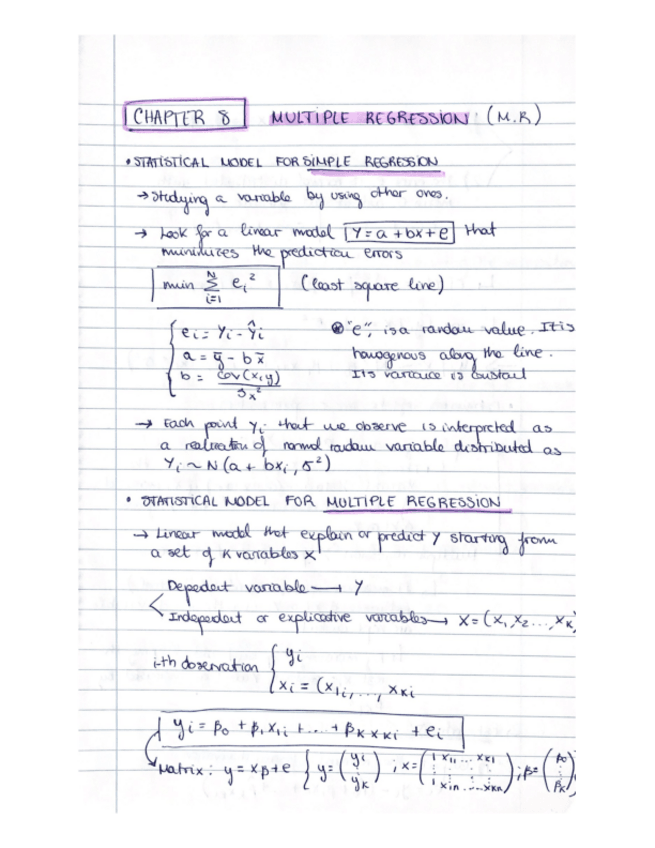 CHAPTER 8 MULTIPLE REGRESSION (M.R)
• STATISTICAL MODEL FOR SIMPLE REGRESSION
→ Studying a variable by using other ones.
→ Look for a linear model Y = a + bx + e that
minimizes the prediction errors
min Σ_{i=1}^{N} e_i² (least square line)
{ e_i = Y_i - Ŷ_i
a = ȳ - b x̄
b = cov(x,y) / s_x²
"e", is a random value. It is
homogenous along the line.
Its variance is constant
→ Each point Y_i that we observe is interpreted as
a realization of normal random variable distributed as
Y_i ~ N(a + bx_i, σ²)
• STATISTICAL MODEL FOR MULTIPLE REGRESSION
→ Linear model that explain or predict Y starting from
a set of K variables X
Depedent variable → Y
Independent or explicative variables → X = (X_1, X_2 ..., X_K)
i-th observation { y_i
x_i = (x_{1i}, ..., x_{Ki}
y_i = β_0 + β_1 x_{1i} + ... + β_K x_{Ki} + e_i
Matrix: y = xβ + e { y = (y_i ⋮ y_K) ; x = (1 x_{11} ... x_{K1} ⋮ 1 x_{1n} ... x_{Kn}) ; β = (β_0 ⋮ β_K)